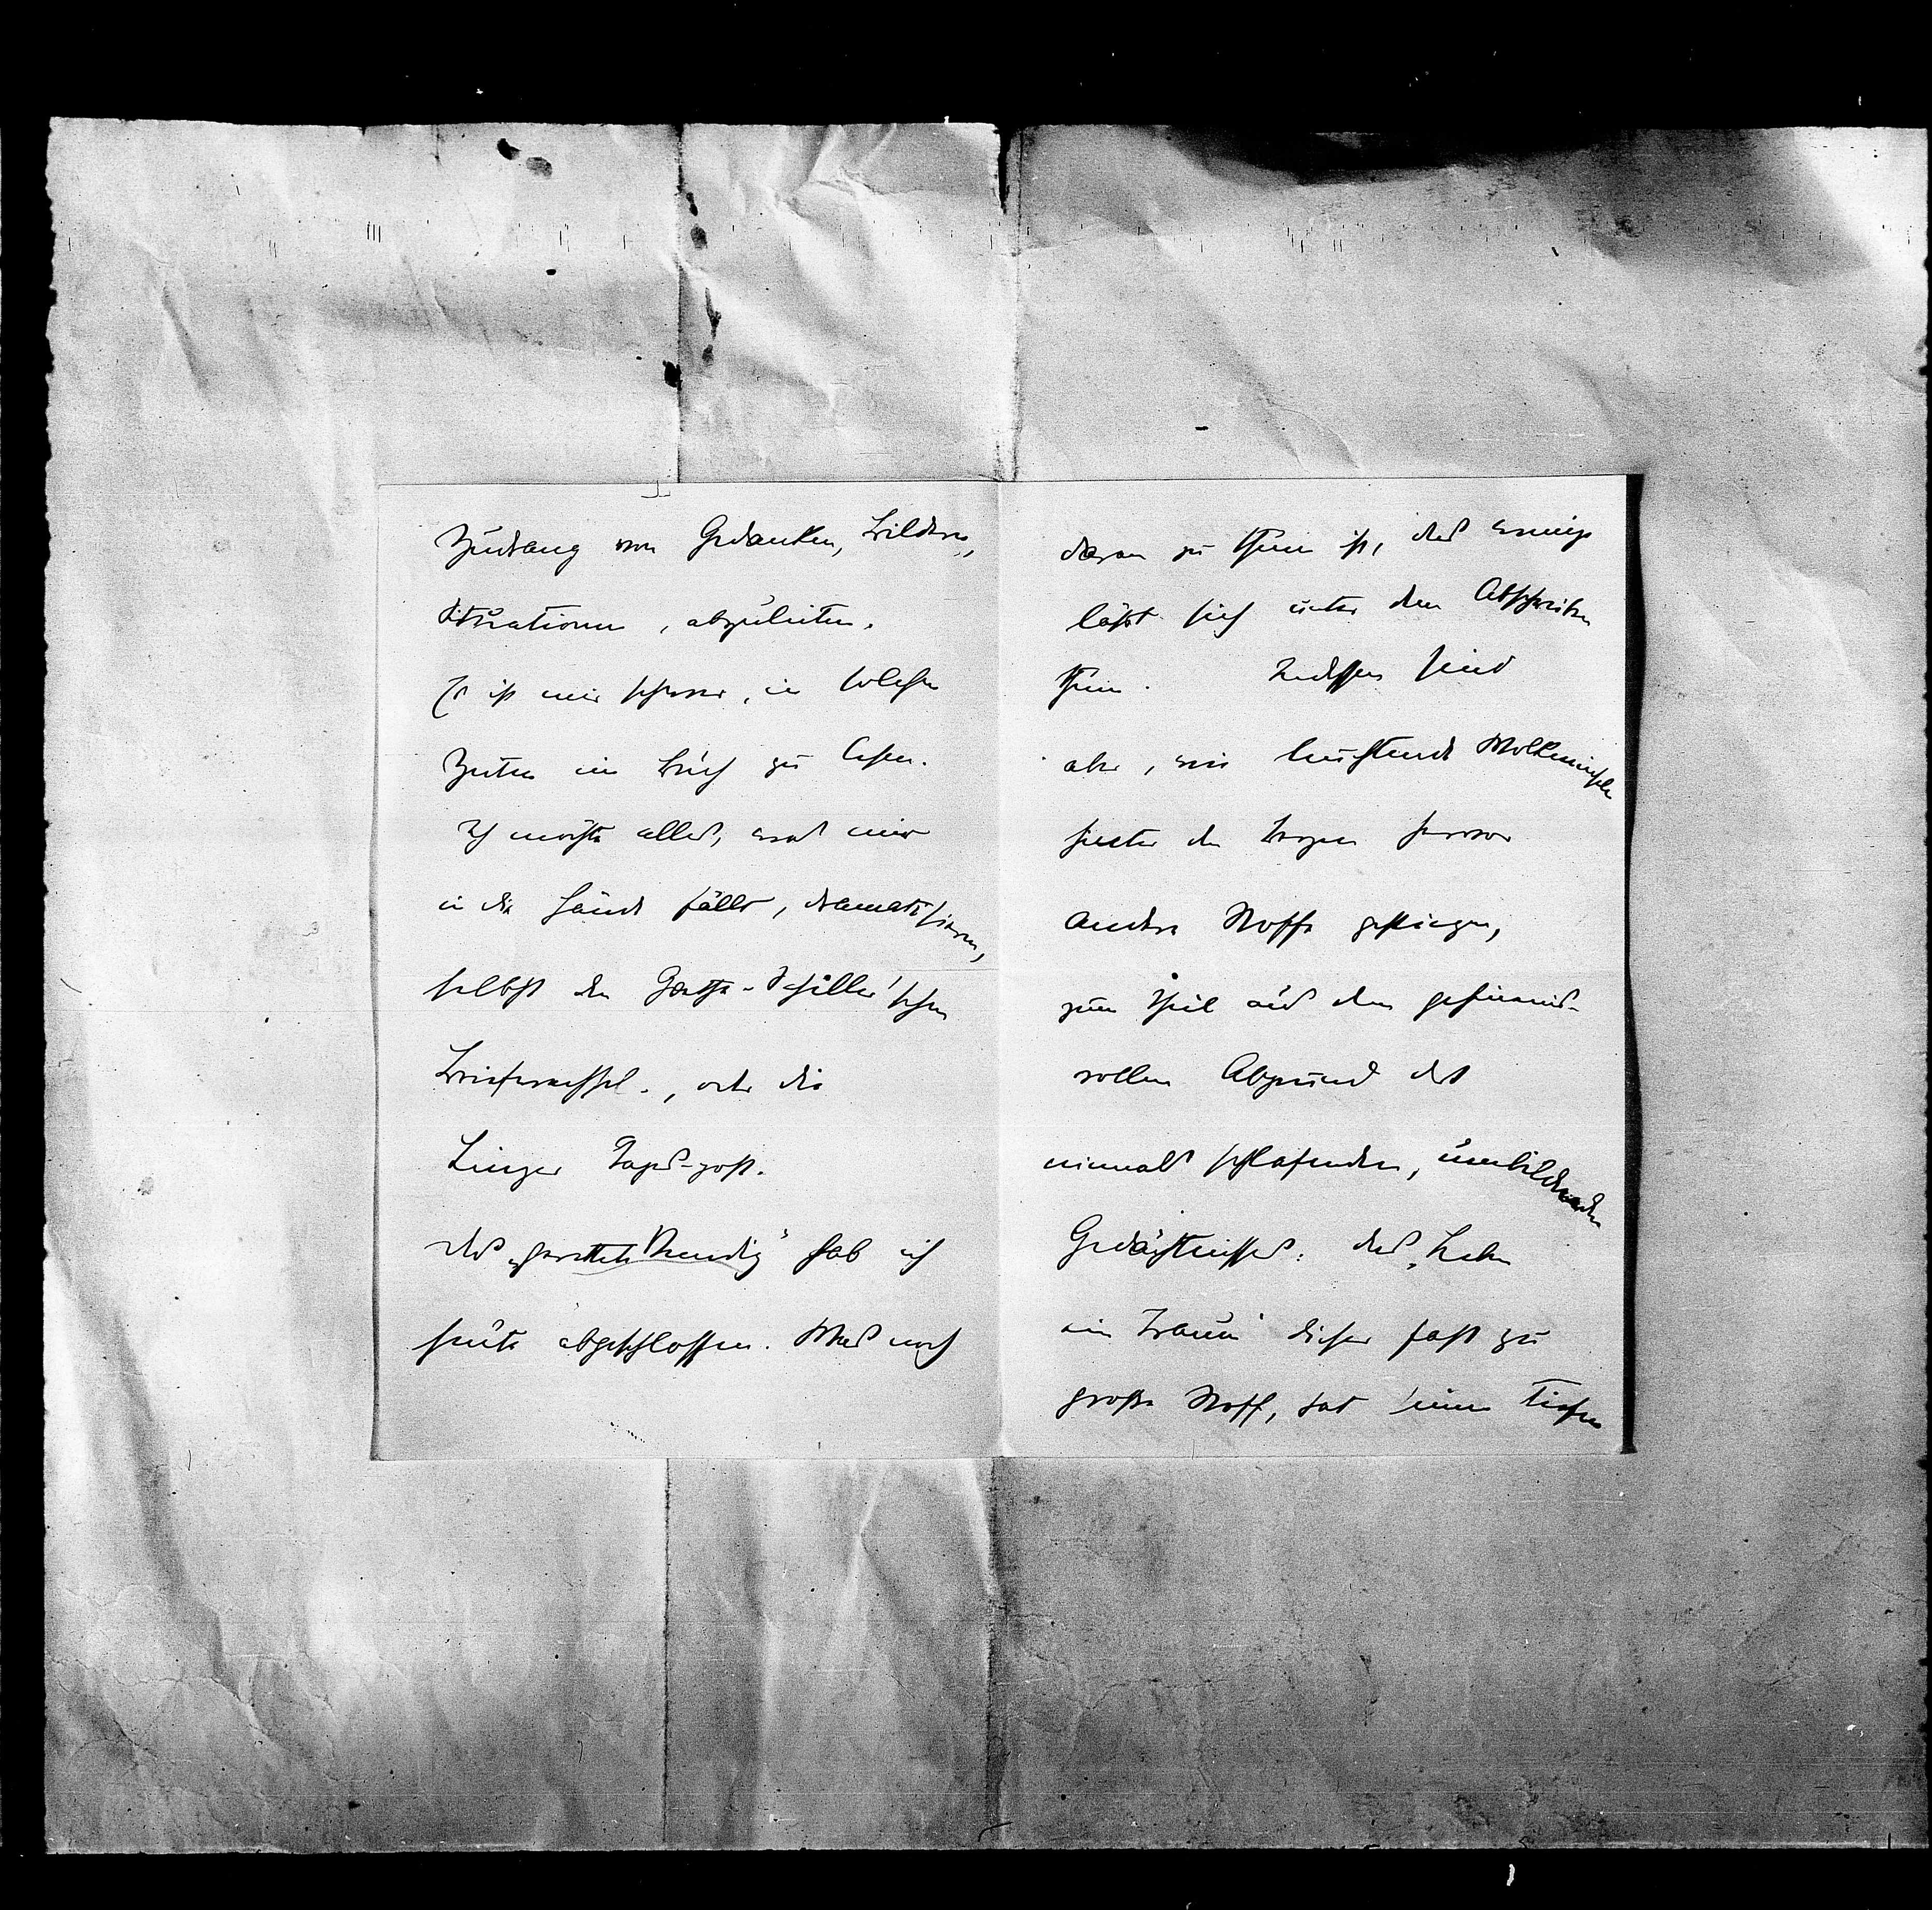 Zudrang von Gedanken, Bildern,
Situationen, abzuleiten.
Es ist mir schwer, in solchen
Zeiten ein Buch zu lesen.
Ich möchte alles, was mir
in die Hände fällt, dramatisieren,
selbst den Goethe-Schiller'schen
Briefwechsel., oder die
Linzer Tages-post.
Das „gerettete Venedig" hab ich
heute abgeschlossen. Was noch
daran zu thun ist, das wenige
läßt sich unter dem Abschreiben
thun. Indessen sind
aber, wie leuchtende Wolkeninseln
hinter den Bergen hervor
andere Stoffe gestiegen,
zum Theil aus dem geheimnis-
vollen Abgrund des
niemals schlafenden, umbildenden
Gedächtnisses: das „Leben
ein Traum" dieser fast zu
große Stoff, hat seine tiefen